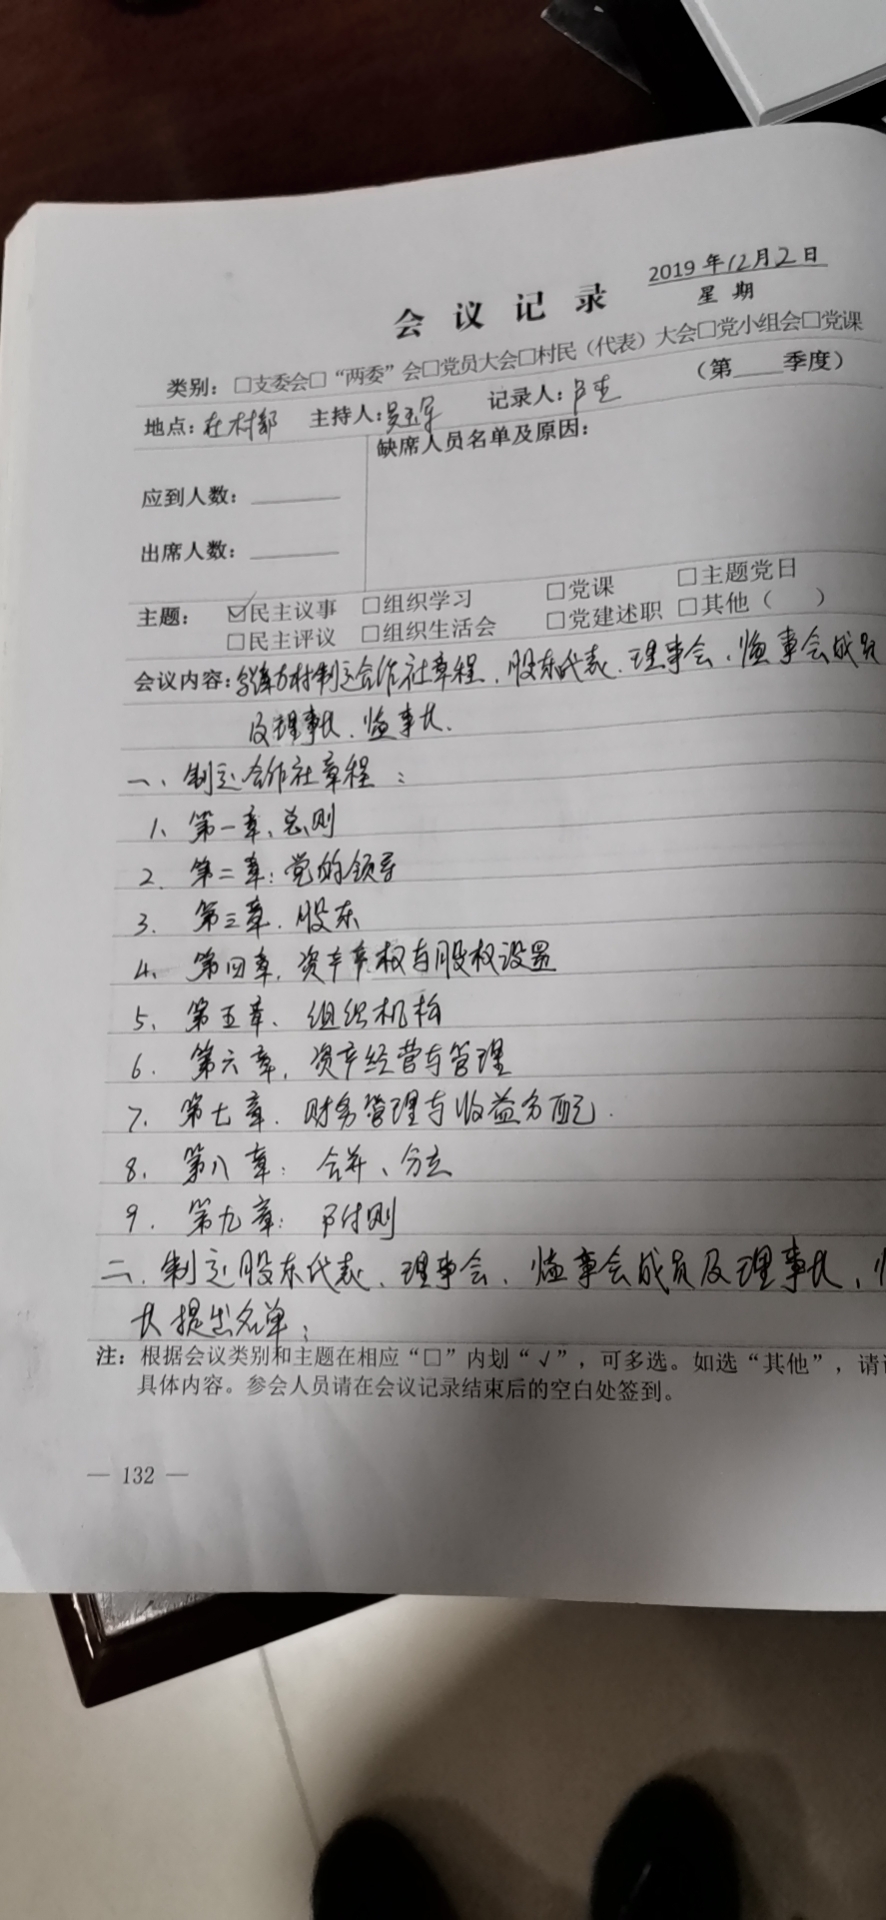 2019年12月2日
会议记录
星期
类别：□支委会□“两委”会□党员大会□村民（代表）大会□党小组会□党课
（第　季度）
地点：在村部 主持人： 记录人：
缺席人员名单及原因：
应到人数：
出席人数：
主题： ☑民主议事 □组织学习 □党课 □主题党日
□民主评议 □组织生活会 □党建述职 □其他（ ）
会议内容：村制定合作社章程、股东代表、理事会、监事会成员
及理事长、监事长.
一、制定合作社章程：
1、第一章、总则
2. 第二章：党的领导
3. 第三章. 股东
4、第四章, 资产产权与股权设置
5、第五章、组织机构
6. 第六章, 资产经营与管理
7. 第七章. 财务管理与收益分配.
8. 第八章：合并、分立
9. 第九章：附则
二. 制定股东代表、理事会、监事会成员及理事长、
长提出名单；
注：根据会议类别和主题在相应“□”内划“√”，可多选。如选“其他”，请
具体内容。参会人员请在会议记录结束后的空白处签到。
— 132 —